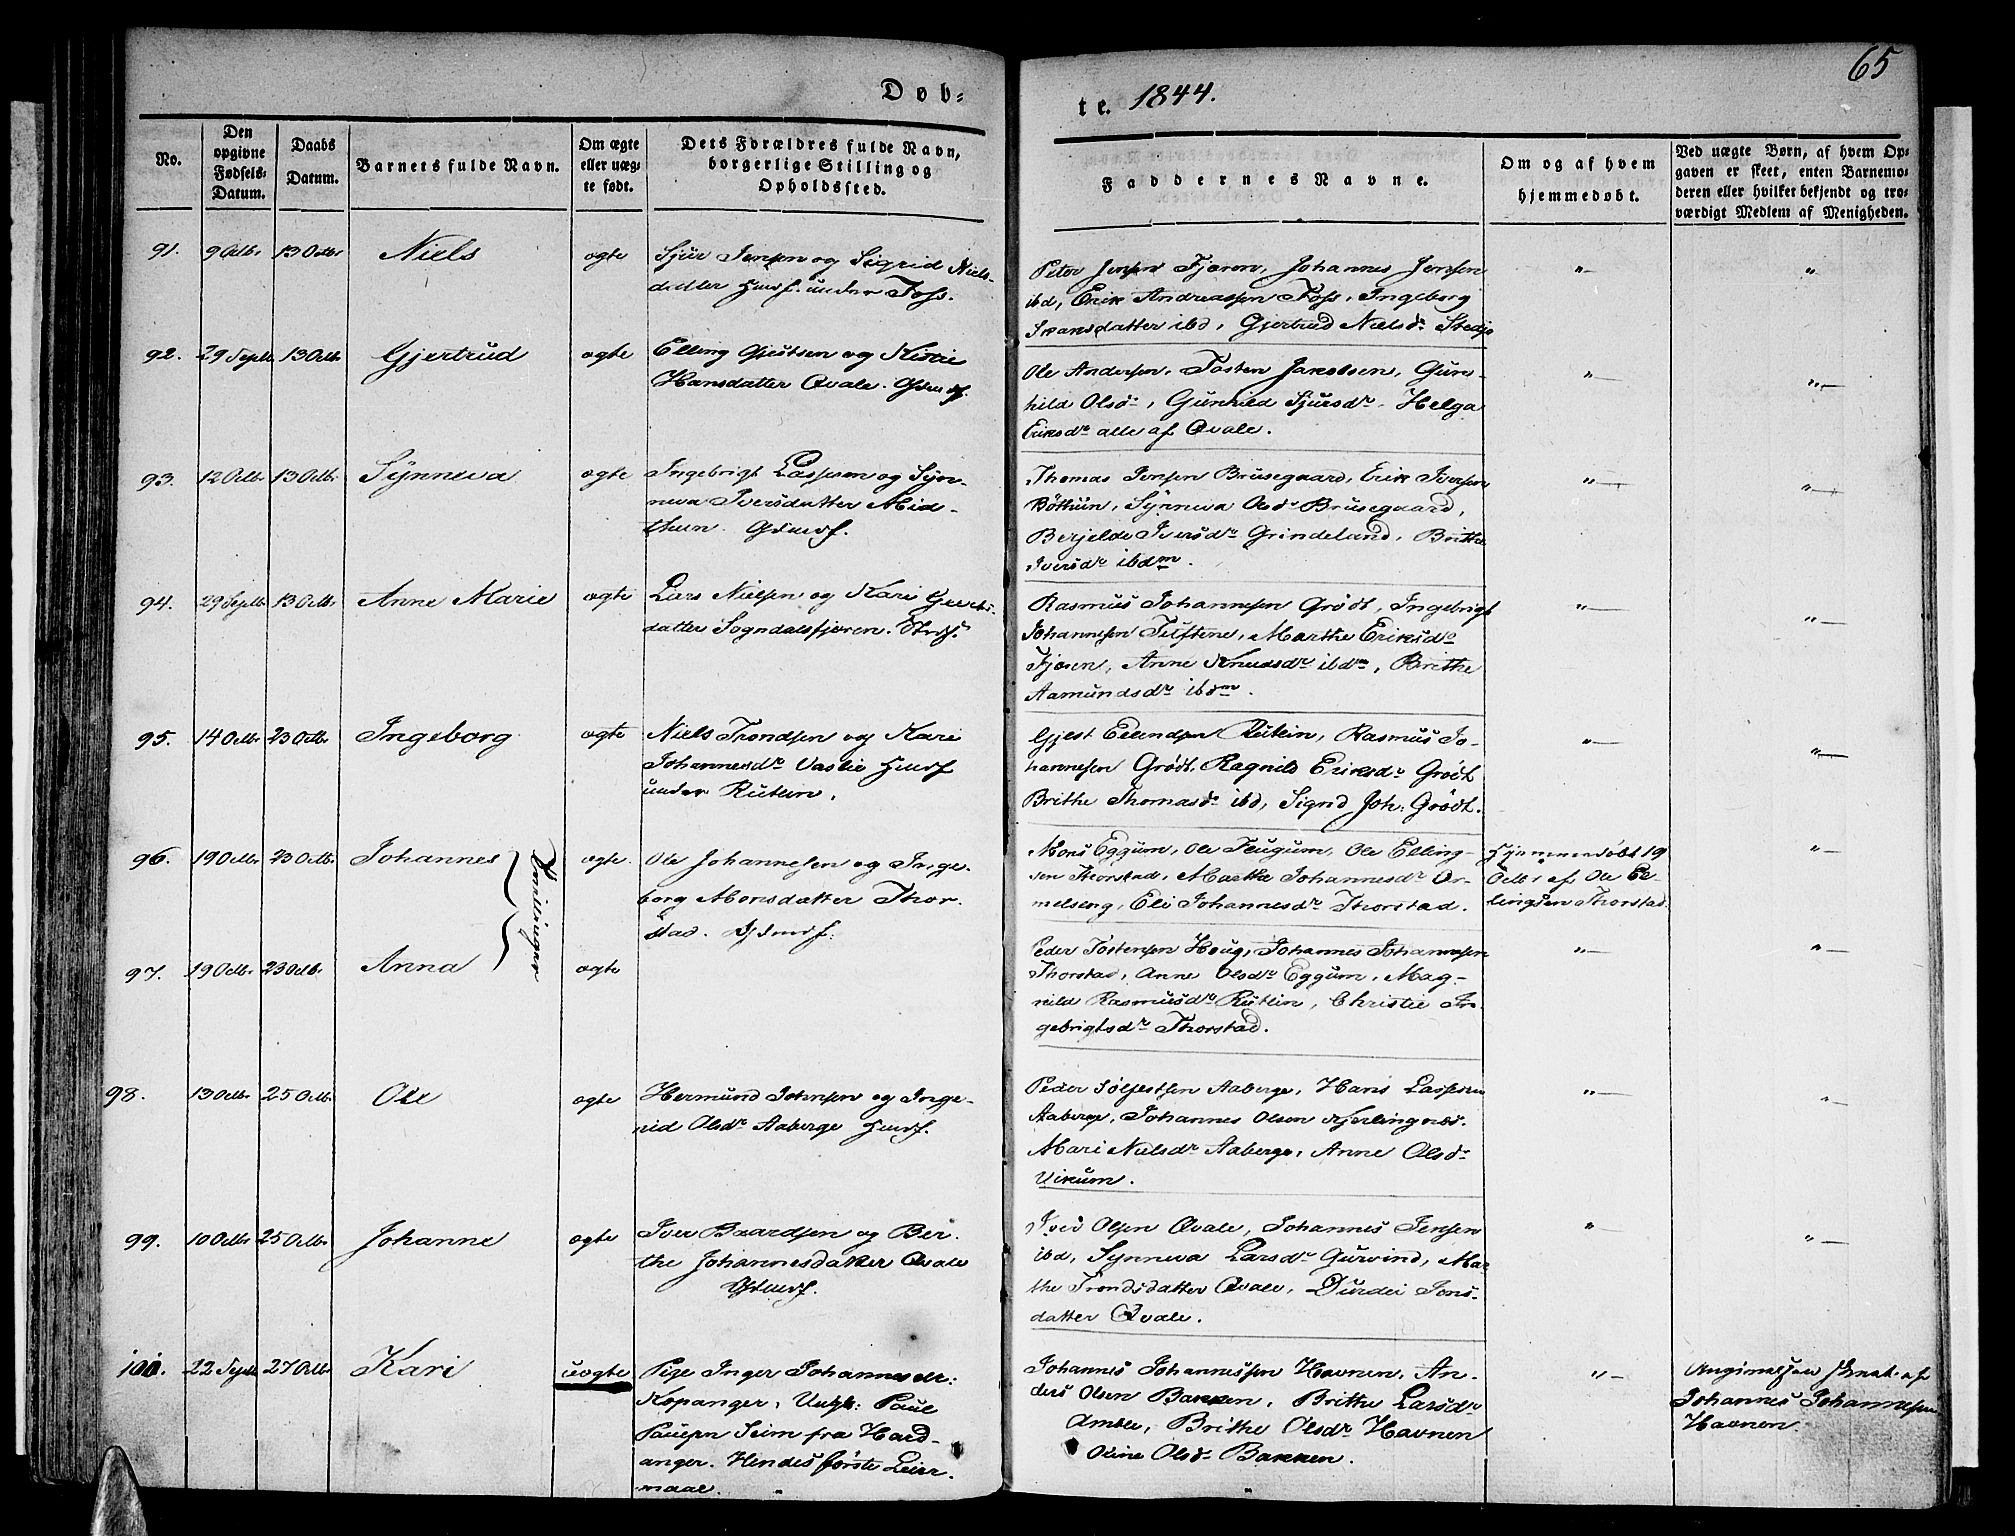 65
Døb=
te. 1844.
No.
Den
opgivne
Fødsels-
Datum.
Daabs
Datum.
Barnets fulde Navn.
Om ægte
eller uæg-
te født.
Dets Forældres fulde Navn,
borgerlige Stilling og
Opholdssted.
Faddernes Navne.
Om og af hvem
hjemmedøbt.
Ved uægte Børn, af hvem Op-
gaven er skeet, enten Barnemo-
deren eller hvilket bekjendt og tro-
værdigt Medlem af Menigheden.
91. 9 Octbr 13 Octbr Niels ægte
Sjur Jensen og Sigrid Niels-
datter Huusf. under Foss.
Peter Jensen Fjæren, Johannes Jensen
ibd, Erik Andreassen Foss, Ingeborg
Ivarsdatter ibd, Gjertrud Nielsdr Stedje
"
"
92. 29 Septb 13 Octb Gjertrud ægte
Elling Gjestsen og Kistie
Hansdatter Qvale. Gbmdf.
Ole Andersen, Tosten Jakobsen, Gun-
hild Olsdr, Gunhild Sjursdr. Helga
Eriksdr alle af Qvale.
"
"
93. 12 Octbr 13 Octbr Synneva ægte
Ingebrigt Lassesen og Syn-
neva Iversdatter Mid-
thun. Gbmdf.
Thomas Jensen Brusegaard, Erik Iversen
Bøthun, Synneva Olsdr Brusegaard,
Berjelde Iversdr Grindeland, Brithe
Iversdr ibdm.
"
"
94. 29 Septb 13 Octbr Anne Marie ægte
Lars Nielsen og Kari
datter Sogndalsfjæren. Strsf.
Rasmus Johannesen Grødt, Ingebrigt
Johannesen Tuftene, Marthe Eriksdr
Fjæren, Anne Knudsdr ibdm, Brithe
Aamundsdr ibdm.
"
"
95. 14 Octbr 23 Octbr Ingeborg ægte
Niels Trondsen og Kari
Johannesdr Vaslie Huusf
under Rutlin.
Gjest Ellendsen Rutlin, Rasmus Jo-
hannesen Grødt, Ragnild Eriksdr Grødt
Brithe Thomasdr ibd, Sigrid Joh: Grødt.
"
"
96. 19 Octbr 23 Octbr Johannes ægte.
Tvillinger
Ole Johannesen og Inge-
borg Monsdatter Thor-
stad. Gbmdf.
Mons Eggum, Ole Flugum, Ole Elling-
sen Thorstad, Marthe Johannesdr Or-
melseng, Eli Johannesdr Thorstad.
Hjemmedøbt 19
Octbr af Ole El-
lingsen Thorstad
"
97. 19 Octbr 23 Octbr. Anna ægte
Peder Tostensen Houg, Johannes Johannesen
Thorstad, Anne Olsdr Eggum, Mag-
nild Rasmusdr Rutlin, Christie In-
gebrigtsdr Thorstad.
"
"
98. 13 Octbr 25 Octb Ole ægte
Hermund Johnsen og Inge-
rid Olsdr Aaberge Huusf.
Peder Sølfestsen Aaberge, Hans Lassesen
Aaberge, Johannes Olsen Kjerlingnæs.
Mari Nielsdr Aaberge, Anne Olsdr
Vikum.
"
"
99. 10 Octbr 25 Octbr Johanne ægte
Iver Baardsen og Ber-
the Johannesdatter Qvale
Gbmdf.
Iver Olsen Qvale, Johannes Jensen
ibd, Synneva Larsdr Gurvind, Mar
the Trondsdatter Qvale, Durdei Jons-
datter Qvale.
"
"
100. 22 Septb 27 Octbr Kari uægte
Pige Inger Johannesdr:
Kopanger, Unghr: Paul
Paulsen Seim fra Hard-
anger. Hendes første Leier-
maal.
Johannes Johannessen Havnen, An-
ders Olsen Bakken, Brithe Larsdr
Amble, Brithe Olsdr Havnen
Oline Olsdr Bakken.
"
Angivelsen skeet af
Johannes Johannesen
Havnen.